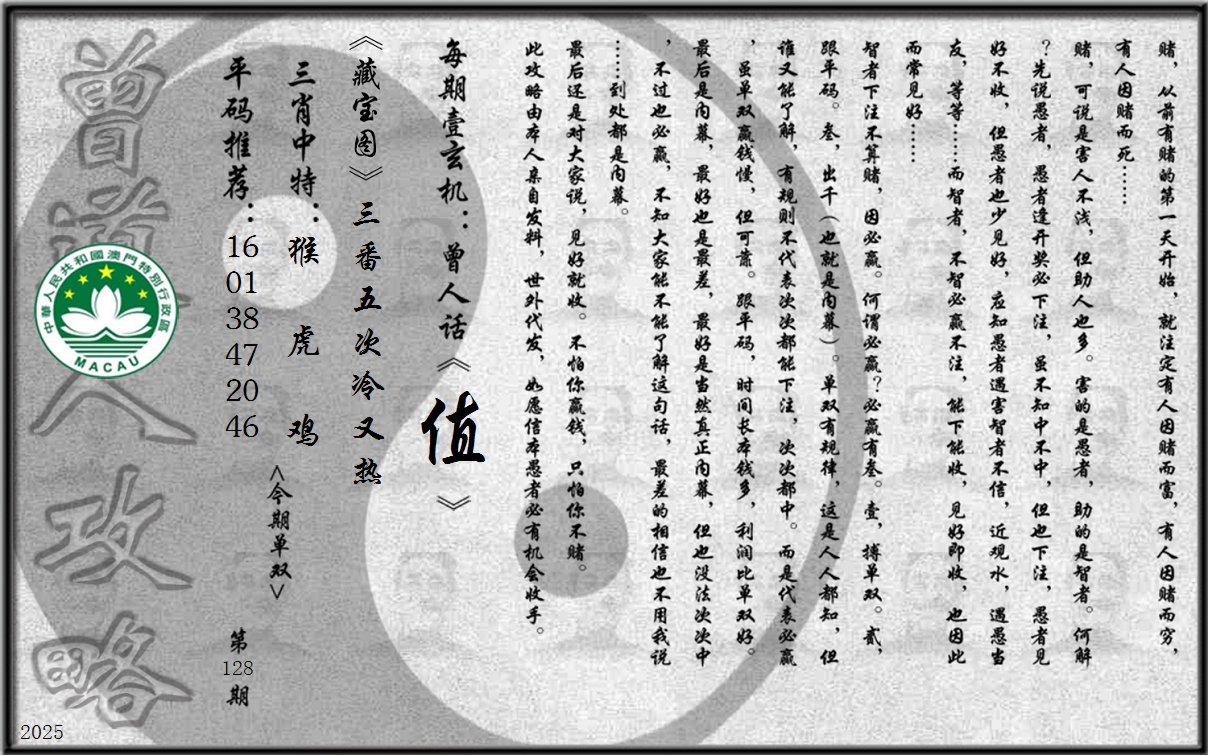 赌，从前有赌的第一天开始，就注定有人因赌而富，有人因赌而穷，
有人因赌而死……
赌，可说是害人不浅，但助人也多。害的是愚者，助的是智者。何解
？先说愚者，愚者逢开奖必下注，虽不知中不中，但也下注，愚者见
好不收，但愚者也少见好，应知愚者遇害智者不信，近观水，遇愚当
友，等等……而智者，不智必赢不注，能下能收，见好即收，也因此
而常见好……
智者下注不算赌，因必赢。何谓必赢？必赢有叁。壹，搏单双。贰，
跟平码。叁，出千（也就是内幕）。单双有规律，这是人人都知，但
谁又能了解，有规则不代表次次都能下注，次次都中。而是代表必赢
，虽单双赢钱慢，但可靠。跟平码，时间长本钱多，利润比单双好。
最后是内幕，最好也是最差，最好是当然真正内幕，但也没法次次中
，不过也必赢，不知大家能不能了解这句话，最差的相信也不用我说
……到处都是内幕。
最后还是对大家说，见好就收。不怕你赢钱，只怕你不赌。
此攻略由本人亲自发料，世外代发，如愿信本愚者必有机会收手。
每期壹玄机：曾人话《值》
《藏宝图》三番五次冷又热
三肖中特：猴 虎 鸡
<今期单双>
平码推荐：16 01 38 47 20 46
第128期
曾道人攻略
中華人民共和國澳門特別行政區
MACAU
2025